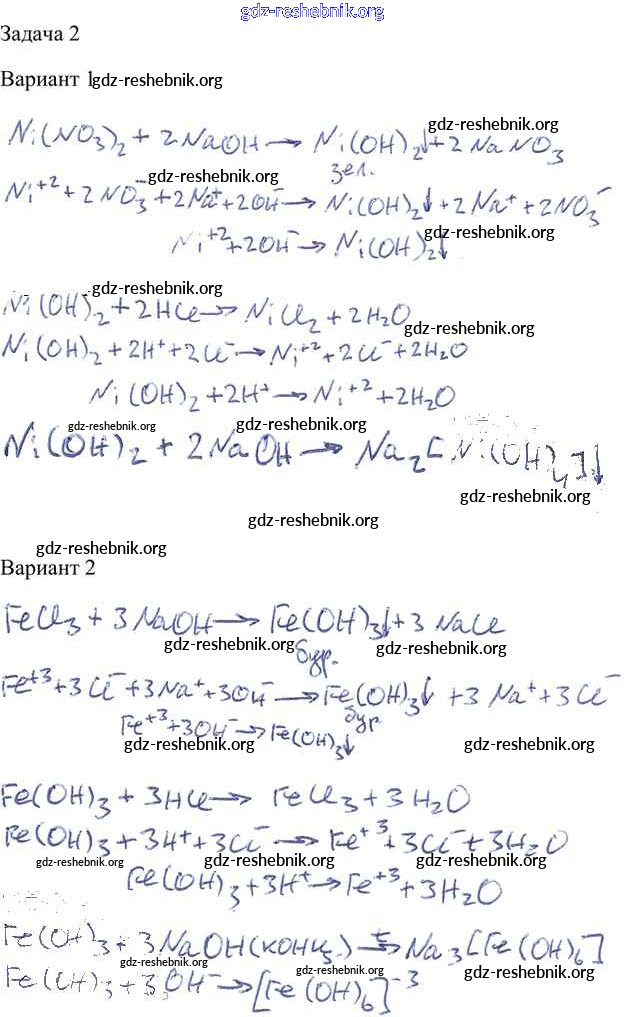 gdz-reshebnik.org
Задача 2
Вариант 1 gdz-reshebnik.org
gdz-reshebnik.org
Ni(NO3)2 + 2NaOH → Ni(OH)2↓ + 2NaNO3
зел.
gdz-reshebnik.org
Ni+2 + 2NO3- + 2Na+ + 2OH- → Ni(OH)2↓ + 2Na+ + 2NO3-
gdz-reshebnik.org
Ni+2 + 2OH- → Ni(OH)2↓
gdz-reshebnik.org
Ni(OH)2 + 2HCl → NiCl2 + 2H2O
gdz-reshebnik.org
Ni(OH)2 + 2H+ + 2Cl- → Ni+2 + 2Cl- + 2H2O
Ni(OH)2 + 2H+ → Ni+2 + 2H2O
gdz-reshebnik.org gdz-reshebnik.org
Ni(OH)2 + 2NaOH → Na2[Ni(OH)4]↓
gdz-reshebnik.org
gdz-reshebnik.org
gdz-reshebnik.org
Вариант 2
FeCl3 + 3NaOH → Fe(OH)3↓ + 3NaCl
бур.
gdz-reshebnik.org gdz-reshebnik.org
Fe+3 + 3Cl- + 3Na+ + 3OH- → Fe(OH)3↓ + 3Na+ + 3Cl-
бур
Fe+3 + 3OH- → Fe(OH)3↓
gdz-reshebnik.org gdz-reshebnik.org
Fe(OH)3 + 3HCl → FeCl3 + 3H2O
Fe(OH)3 + 3H+ + 3Cl- → Fe+3 + 3Cl- + 3H2O
gdz-reshebnik.org gdz-reshebnik.org gdz-reshebnik.org
Fe(OH)3 + 3H+ → Fe+3 + 3H2O
Fe(OH)3 + 3NaOH(конц.) t→ Na3[Fe(OH)6]
gdz-reshebnik.org gdz-reshebnik.org gdz-reshebnik.org
Fe(OH)3 + 3OH- → [Fe(OH)6]-3